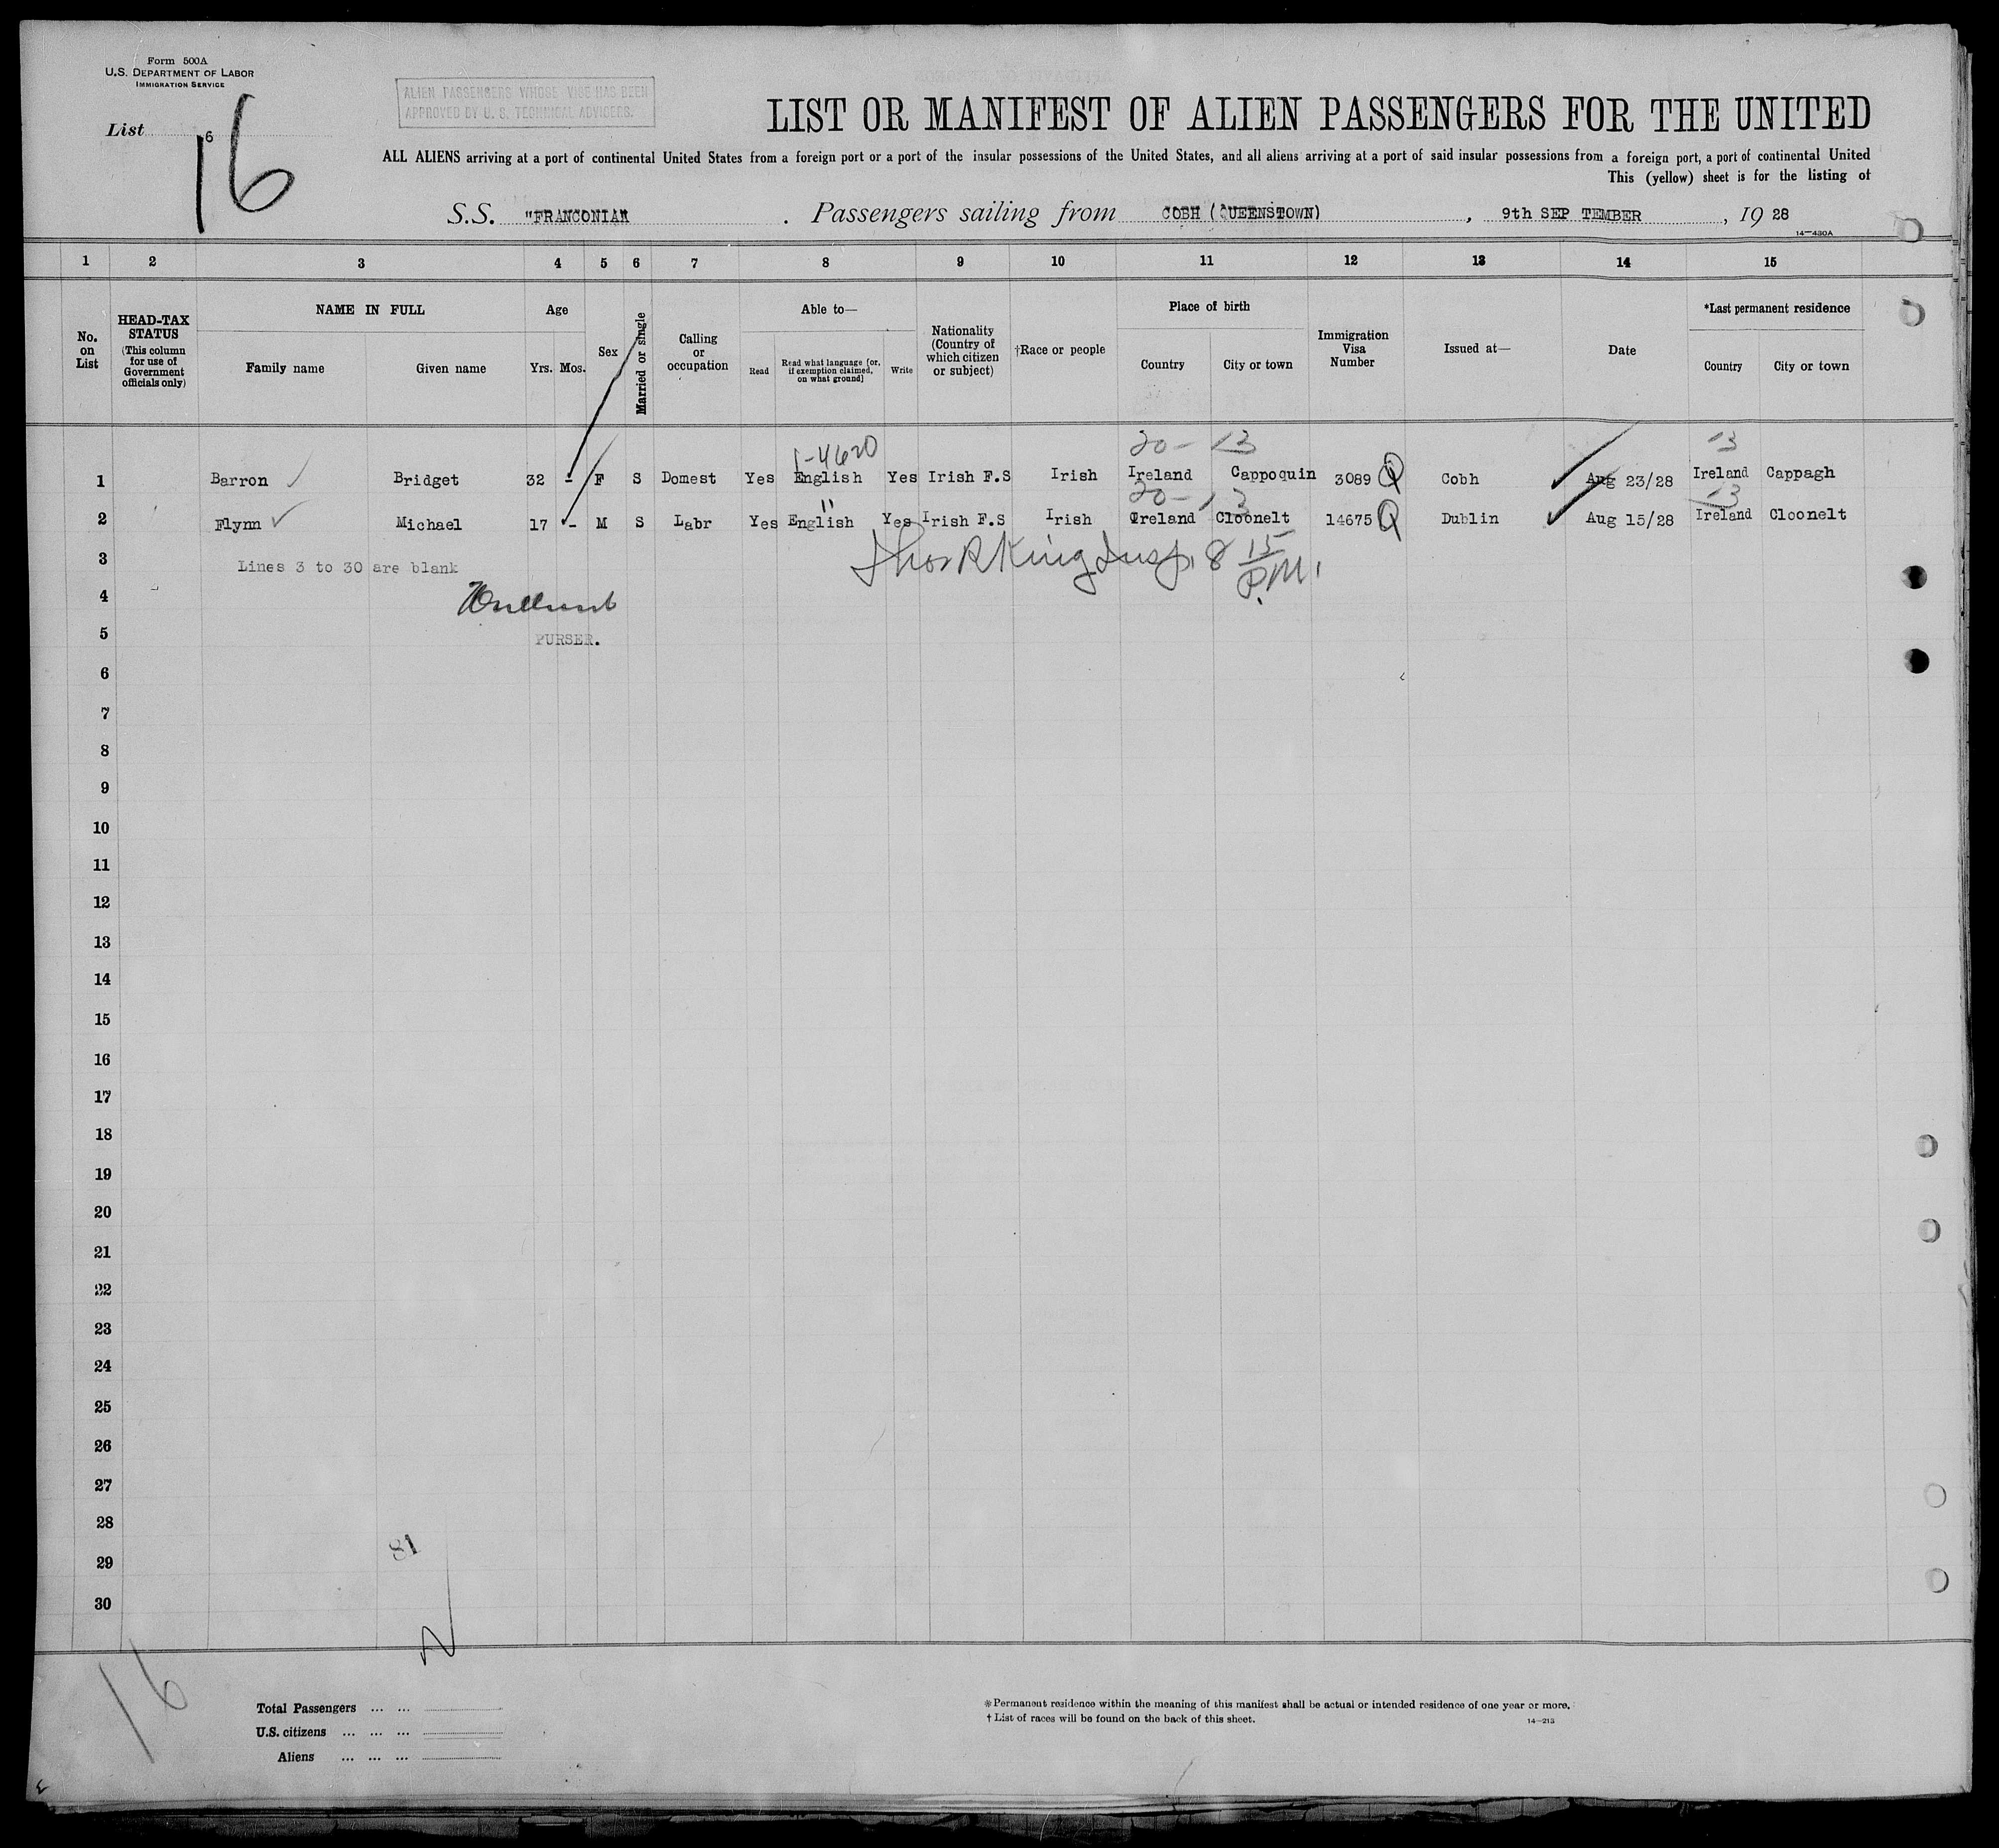 Form 500A
U.S. DEPARTMENT OF LABOR
IMMIGRATION SERVICE
List 6
16
ALIEN PASSENGERS WHOSE VISE HAS BEEN
APPROVED BY U. S. TECHNICAL ADVISERS.
LIST OR MANIFEST OF ALIEN PASSENGERS FOR THE UNITED
ALL ALIENS arriving at a port of continental United States from a foreign port or a port of the insular possessions of the United States, and all aliens arriving at a port of said insular possessions from a foreign port, a port of continental United
This (yellow) sheet is for the listing of
S.S. "FRANCONIA" . Passengers sailing from COBH (QUEENSTOWN) , 9th SEP TEMBER , 19 28
14—430A
1 2 3 4 5 6 7 8 9 10 11 12 13 14 15
No. on List
HEAD-TAX STATUS (This column for use of Government officials only)
NAME IN FULL
Family name Given name
Age
Yrs. Mos.
Sex
Married or single
Calling or occupation
Able to—
Read
Read what language [or, if exemption claimed, on what ground]
Write
Nationality (Country of which citizen or subject)
†Race or people
Place of birth
Country City or town
Immigration Visa Number
Issued at—
Date
*Last permanent residence
Country City or town
1-4620 20- 13 13
1 Barron Bridget 32 - F S Domest Yes English Yes Irish F.S Irish Ireland Cappoquin 3089 Q Cobh Aug 23/28 Ireland Cappagh
" 20- 13 13
2 Flynn Michael 17 - M S Labr Yes English Yes Irish F.S Irish Ireland Cloonelt 14675 Q Dublin Aug 15/28 Ireland Cloonelt
3 Lines 3 to 30 are blank
Thos R King Insp. 8 15 P.M.
4
5 PURSER.
6
7
8
9
10
11
12
13
14
15
16
17
18
19
20
21
22
23
24
25
26
27
28
81
29
30
16
Total Passengers ... ...
U.S. citizens ... ... ...
Aliens ... ... ...
*Permanent residence within the meaning of this manifest shall be actual or intended residence of one year or more.
† List of races will be found on the back of this sheet.
14—213